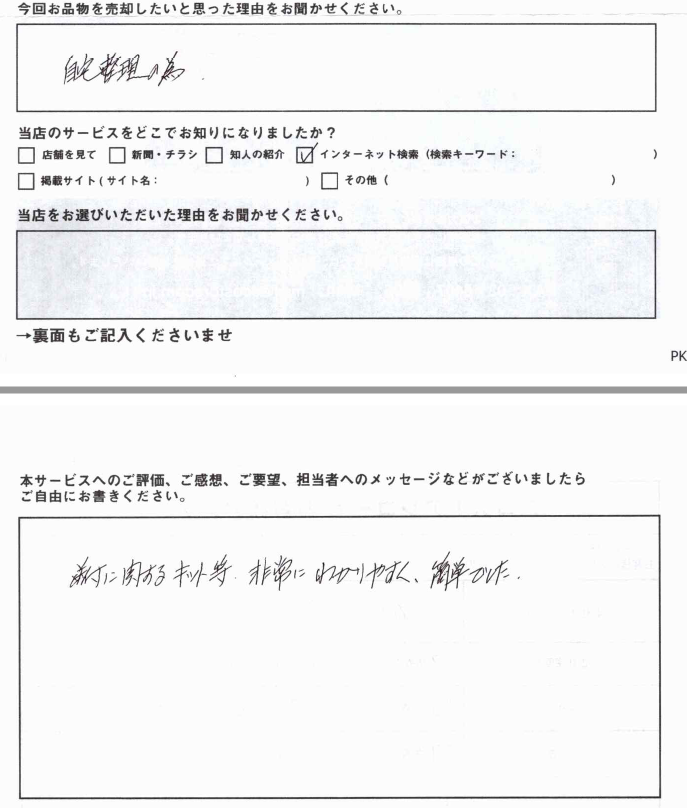 今回お品物を売却したいと思った理由をお聞かせください。
自宅整理の為.
当店のサービスをどこでお知りになりましたか？
□ 店舗を見て □ 新聞・チラシ □ 知人の紹介 ☑ インターネット検索（検索キーワード： ）
□ 掲載サイト（サイト名： ） □ その他（ ）
当店をお選びいただいた理由をお聞かせください。
→裏面もご記入くださいませ
PK
本サービスへのご評価、ご感想、ご要望、担当者へのメッセージなどがございましたら
ご自由にお書きください。
に関するキット等. 非常にわかりやすく、簡単でした.